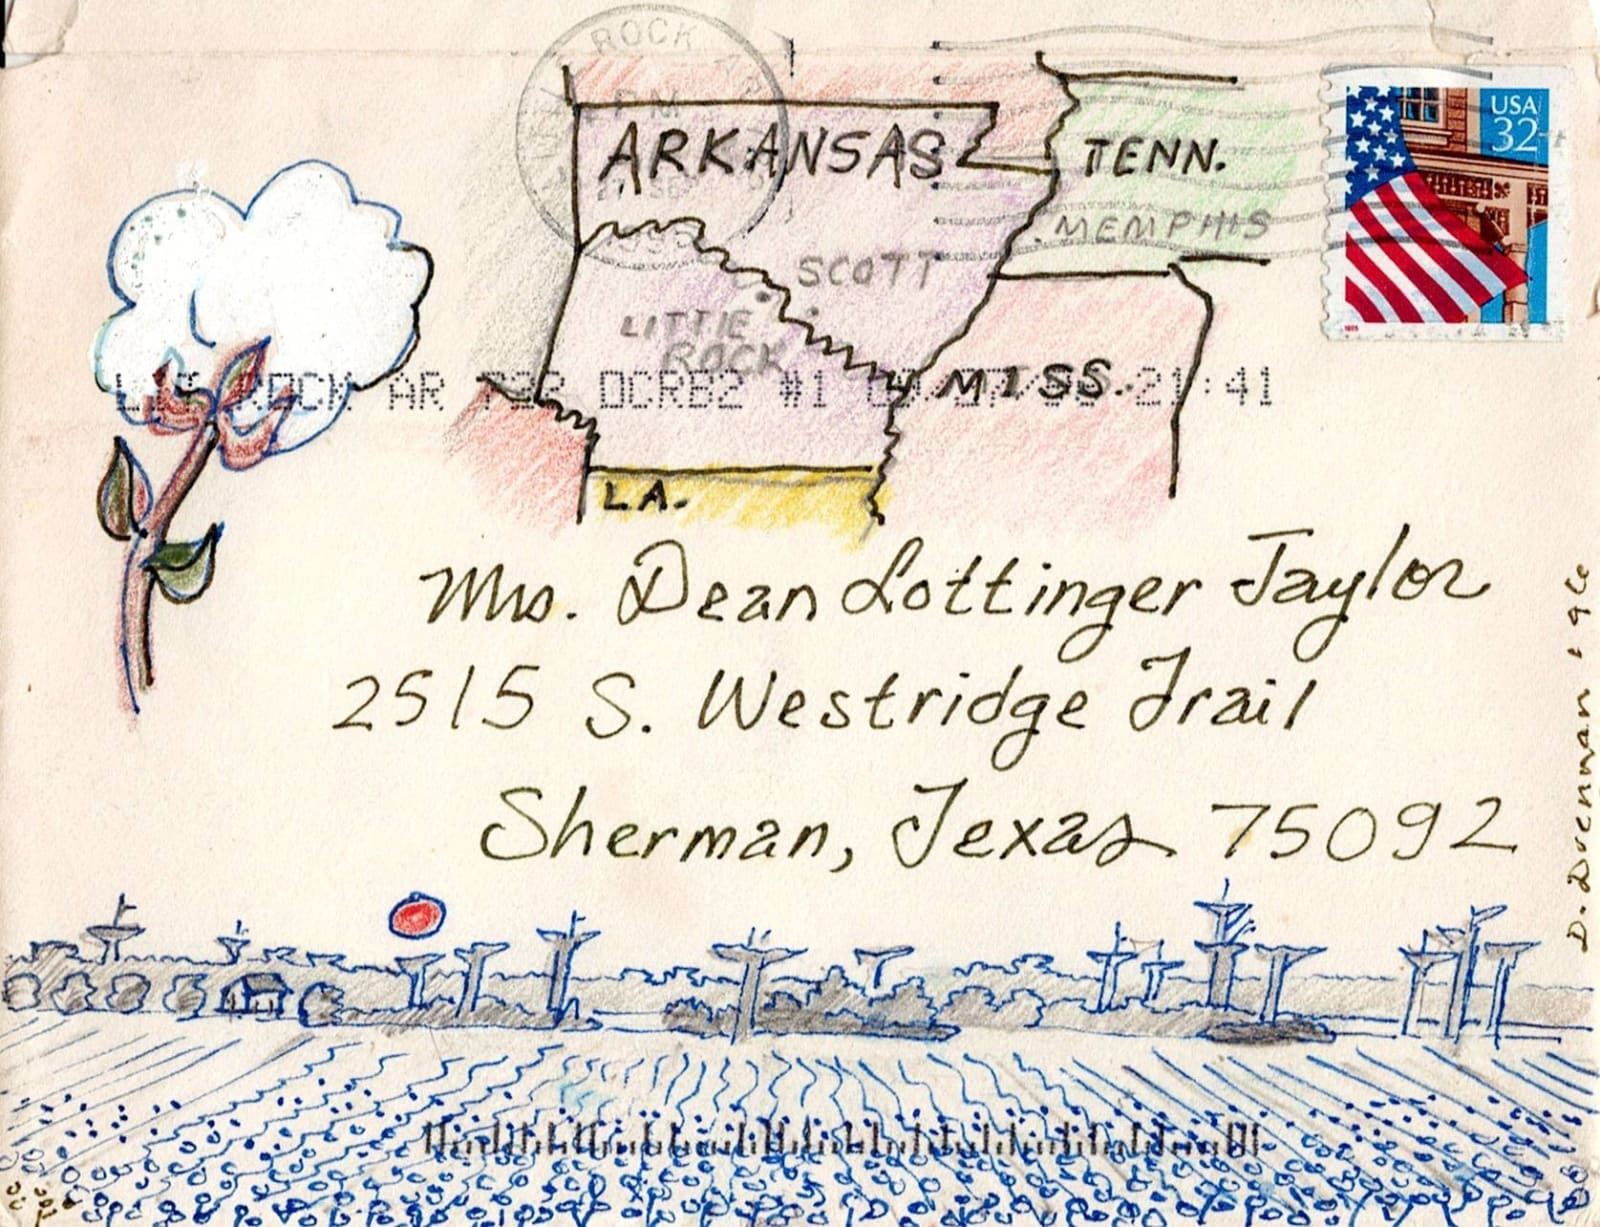 ROCK
PM
USA
32
ARKANSAS
TENN.
MEMPHIS
SCOTT
LITTLE
ROCK
ROCK AR 722 DCRB2 #1 21:41
MISS.
LA.
Mrs. Dean Lottinger Taylor
2515 S. Westridge Trail
Sherman, Texas 75092
D. Duenman 1996